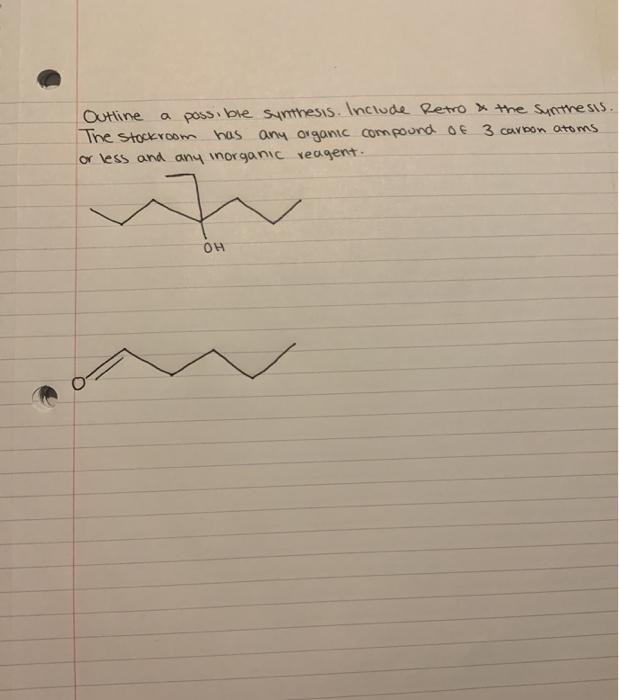 Outline a possible synthesis. Include Retro & the synthesis.
The stockroom has any organic compound of 3 carbon atoms
or less and any inorganic reagent.
OH
O